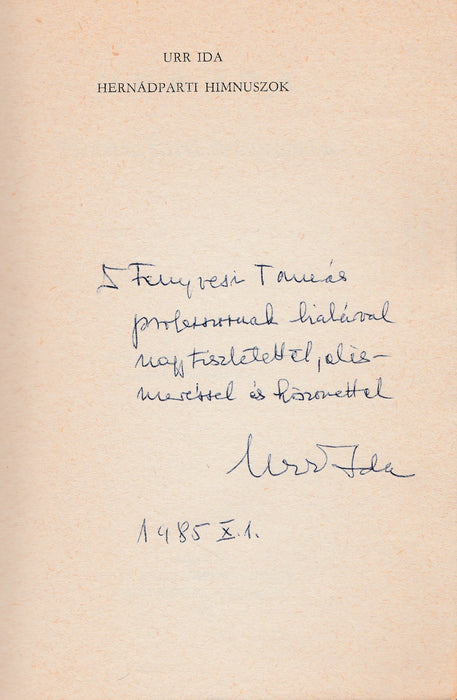 URR IDA
HERNÁDPARTI HIMNUSZOK
Fenyvesi Tamás
professzornak hálával
nagy tisztelettel, elis-
meréssel és köszönettel
Urr Ida
1985 X. 1.